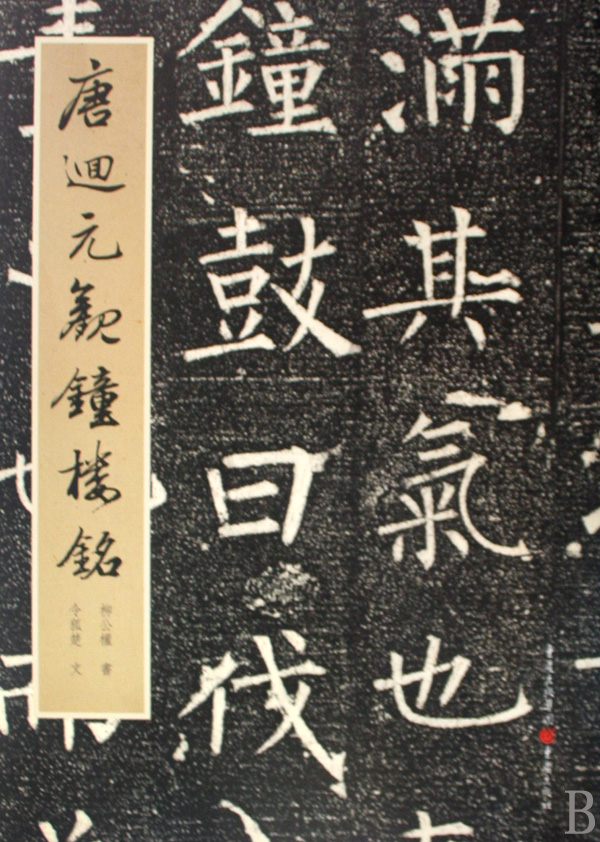 唐迴元觀鐘樓銘
柳公權 書
令狐楚 文
滿其氣也
鐘鼓曰伐
B